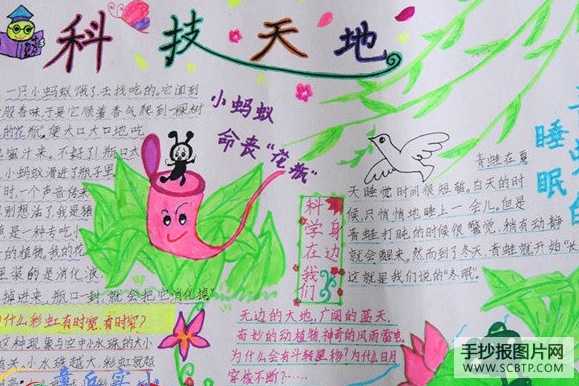 科技天地
一只小蚂蚁饿了去找吃的。它闻到
股香味于是它顺着香气爬到一棵树
的花瓶,便大口大口地吃
蜜汁来。不好了!瓶口太
小蚂蚁滑进了瓶子里
时,一个声音传来
别想活了,我是猪
草是一种专吃
的植物。我的花
里装的是消化液
掉进来,瓶口一封,就会把它消化掉”
小蚂蚁
命丧“花瓶”
科学在我们
身边
睡
眠
青蛙在夏
天睡觉时间很短菊。白天的时
候,只悄悄地睡上一会儿。但是
青蛙打盹的时候很警觉,稍有动静
就会醒来。然而到了冬天,青蛙就开始“长
这就是我们说的“冬眠”
什么彩虹有时宽,有时窄?
这种现象与空中小水珠的大小
有关,小水珠越大,彩虹就越
无边的大地,广阔的蓝天。
奇妙的动植物,神奇的风雨雷电。
为什么会有斗转星移?为什么日月
穿梭不断?……
手抄报图片网
WWW.SCBTP.COM